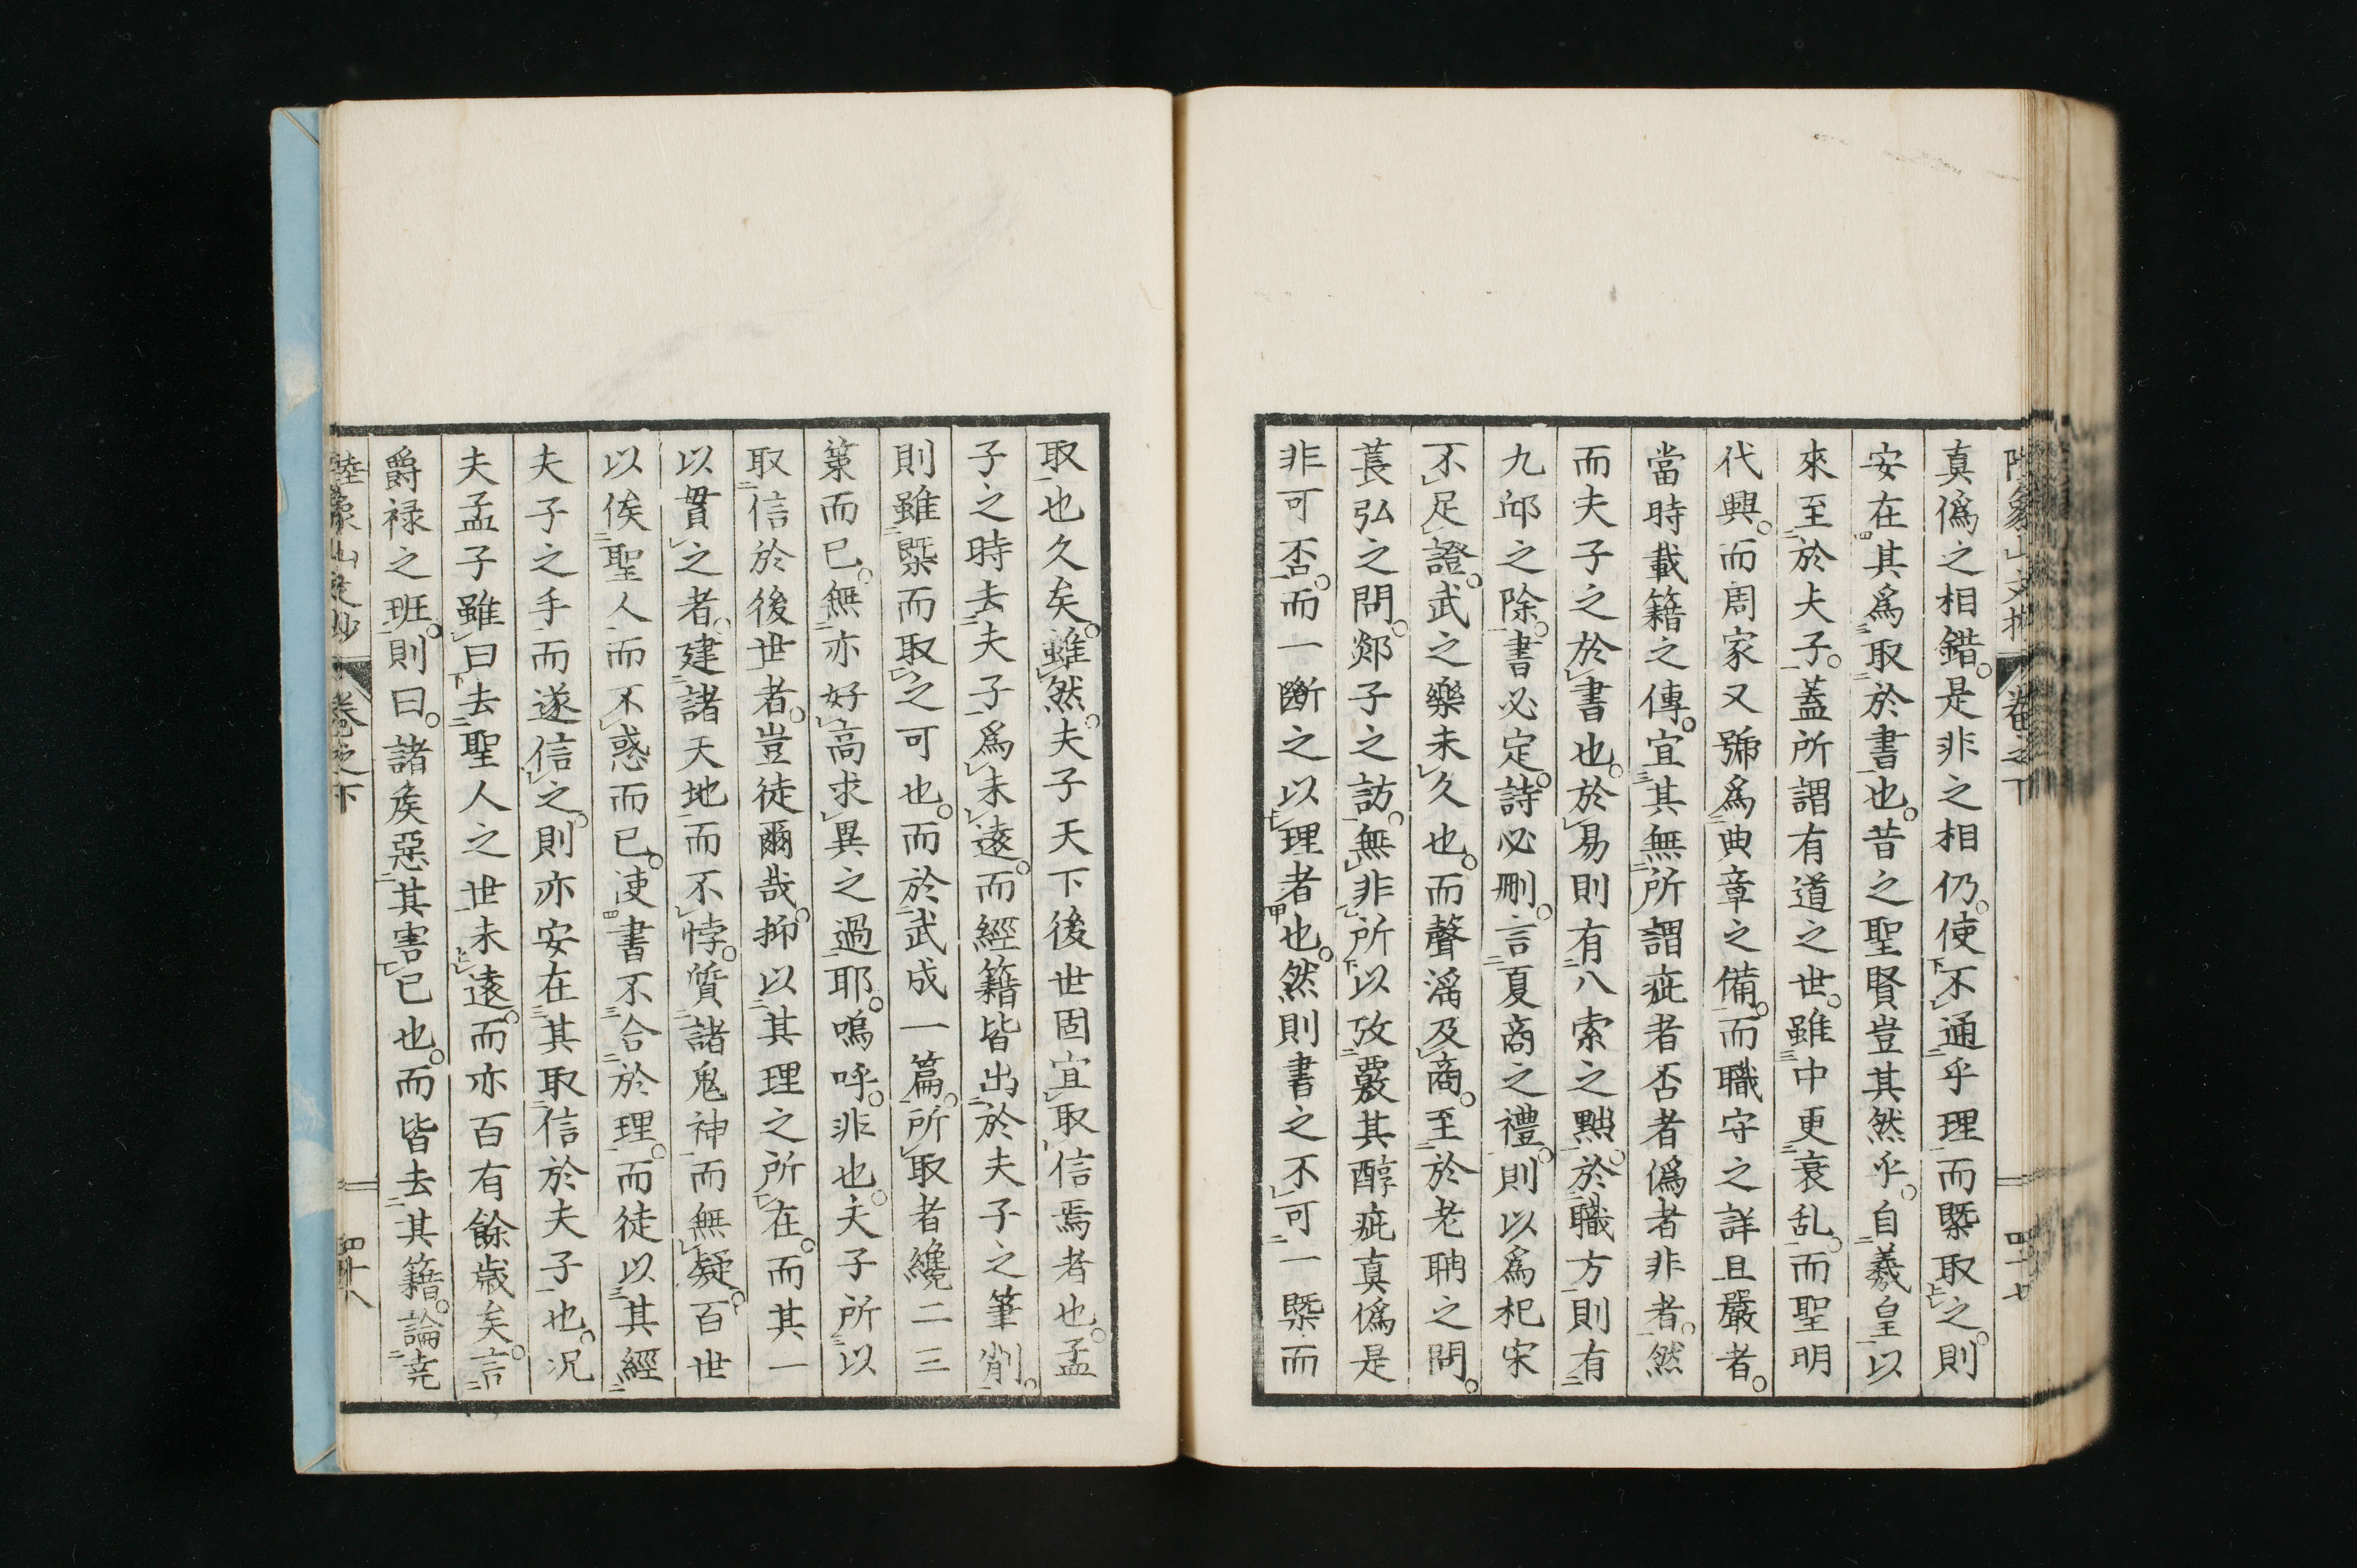 真僞之相錯。是非之相仍。使不通乎理而槩取之。則
安在其爲取於書也。昔之聖賢豈其然乎。自羲皇以
來至於夫子。蓋所謂有道之世。雖中更衰乱。而聖明
代興。而周家又號爲典章之備。而職守之詳且嚴者。
當時載籍之傳。宜其無所謂疵者否者僞者非者。然
而夫子之於書也。於易則有八索之黜。於職方則有
九邱之除。書必定。詩必刪。言夏商之禮。則以爲杞宋
不足證。武之樂未久也。而聲滛及商。至於老聃之問。
萇弘之問。郯子之訪。無非所以攷覈其醇疵真僞是
非可否。而一斷之以理者也。然則書之不可一槩而
取也久矣。雖然。夫子天下後世固宜取信焉者也。孟
子之時去夫子爲未遠。而經籍皆出於夫子之筆削。
則雖槩而取之可也。而於武成一篇。所取者纔二三
策而已。無亦好高求異之過耶。嗚呼。非也。夫子所以
取信於後世者。豈徒爾哉。抑以其理之所在。而其一
以貫之者。建諸天地而不悖。質諸鬼神而無疑。百世
以俟聖人而不惑而已。使書不合於理。而徒以其經
夫子之手而遂信之。則亦安在其取信於夫子也。况
夫孟子雖曰去聖人之世未遠。而亦百有餘歲矣。言
爵禄之班。則曰。諸矦惡其害已也。而皆去其籍。論堯
陸象山文抄 卷之下 四十八